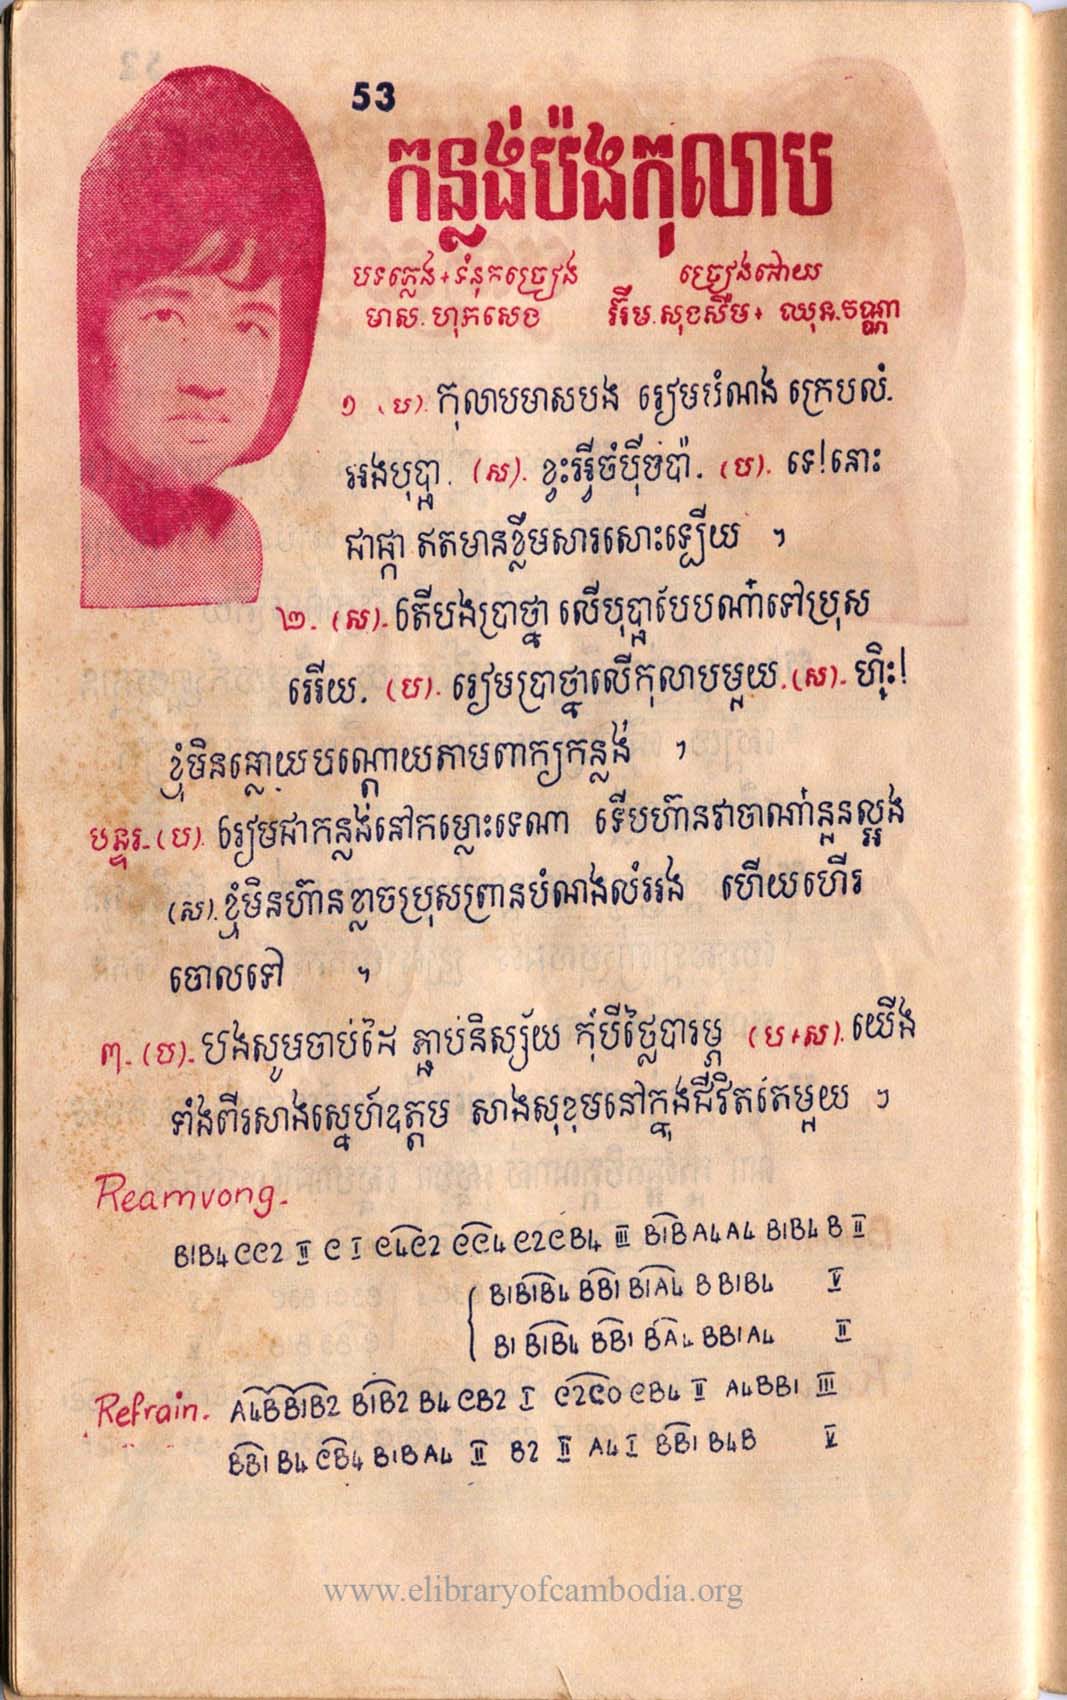 53
កន្លង់ប៉ងកុលាប
បទភ្លេង+ទំនុកច្រៀង ច្រៀងដោយ
មាស.ហុកសេង អ៊ឹម.សុងសឺម+ ឈុន.វណ្ណា
១ (ប). កុលាបមាសបង រៀមបំណង ក្រេបលំ.
អងបុប្ផា. (ស). ខ្វះអ្វីចំប៉ីចប៉ា. (ប). ទេ!នោះ
ជាផ្កា ឥតមានខ្លឹមសារសោះឡើយ ។
២. (ស). តើបងប្រាថ្នា លើបុប្ផាបែបណាទៅប្រុស
អើយ. (ប). រៀមប្រាថ្នាលើកុលាបមួយ. (ស). ហ៊ិះ!
ខ្ញុំមិនឆ្លោយបណ្ដោយតាមពាក្យកន្លង់ ។
បន្ទរ. (ប). រៀមជាកន្លង់នៅកម្លោះទេណា ទើបហ៊ានវាចាណ៎ានួនល្អង
(ស). ខ្ញុំមិនហ៊ានខ្លាចប្រុសព្រានបំណងលំអង ហើយហើរ
ចោលទៅ ។
៣. (ប). បងសូមចាប់ដៃ ភ្ជាប់និស្ស័យ កុំបីថ្លៃបារម្ភ (ប+ស). យើង
ទាំងពីរសាងស្នេហ៍ឧត្តម សាងសុខុមនៅក្នុងជីវិតតែមួយ ។
Reamvong.
B1B4CC2 II C I C4C2 CC4 C2CB4 III B1B A4A4 B1B4 B II
B1B1B4 BB1 B1A4 B BB1B4 V
B1 B1B4 BB1 BA4 BB1A4 II
Refrain. A4BB1B2 B1B2 B4 CB2 I C2C0 CB4 II A4BB1 III
BB1 B4 CB4 B1B A4 II B2 II A4 I BB1 B4B V
www.elibraryofcambodia.org